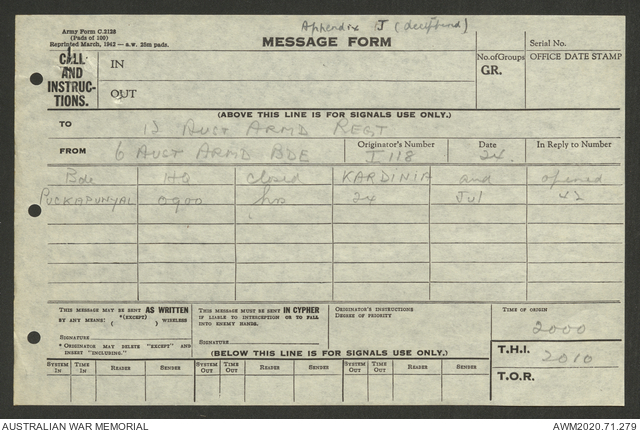 Army Form C.2128
(Pads of 100)
Reprinted March, 1942 — a.w. 25m pads.
Appendix J
MESSAGE FORM
Serial No.
CALL AND INSTRUCTIONS.
IN
OUT
No. of Groups
GR.
OFFICE DATE STAMP
(ABOVE THIS LINE IS FOR SIGNALS USE ONLY.)
TO 12 AUST ARMD REGT
FROM 6 AUST ARMD BDE
Originator's Number I 118
Date 24
In Reply to Number
Bde HQ closed KARDINIA and opened
PUCKAPUNYAL 0900 hrs 24 Jul 42
THIS MESSAGE MAY BE SENT AS WRITTEN
BY ANY MEANS: *(EXCEPT) WIRELESS
( )
SIGNATURE
* ORIGINATOR MAY DELETE "EXCEPT" AND
INSERT "INCLUDING."
THIS MESSAGE MUST BE SENT IN CYPHER
IF LIABLE TO INTERCEPTION OR TO FALL
INTO ENEMY HANDS.
SIGNATURE
ORIGINATOR'S INSTRUCTIONS
DEGREE OF PRIORITY
TIME OF ORIGIN
2000
T.H.I. 2010
T.O.R.
(BELOW THIS LINE IS FOR SIGNALS USE ONLY.)
SYSTEM IN TIME IN READER SENDER SYSTEM OUT TIME OUT READER SENDER SYSTEM OUT TIME OUT READER SENDER
AUSTRALIAN WAR MEMORIAL
AWM2020.71.279